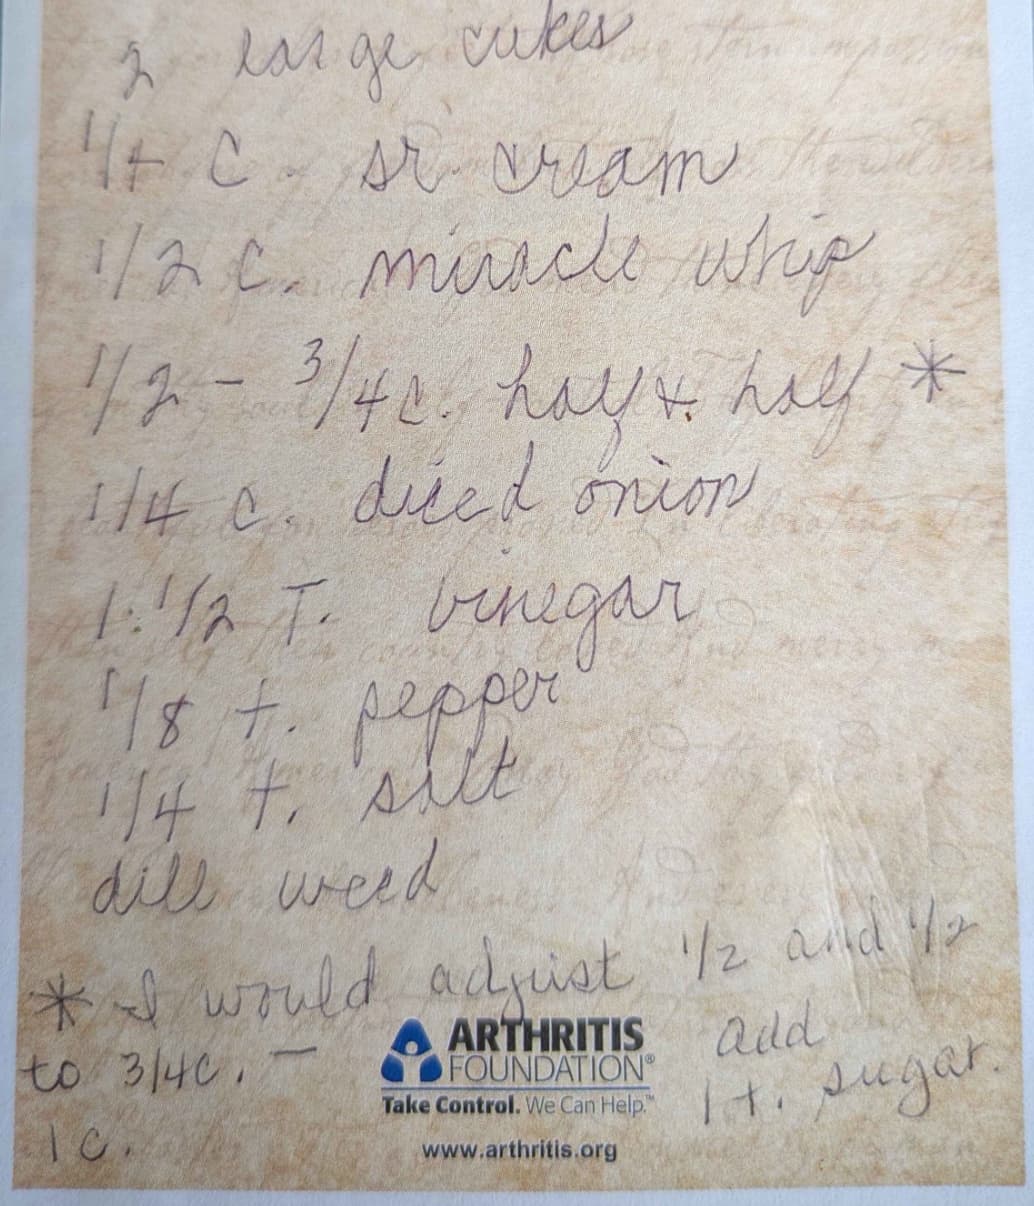 2 large cukes
1/4 c. sr. cream
1/2 c. miracle whip
1/2 - 3/4 c. half & half *
1/4 c. diced onion
1 1/2 T. vinegar
1/8 t. pepper
1/4 t. salt
dill weed
* I would adjust 1/2 and 1/2
to 3/4 c. -
1 c.
add
1 t. sugar.
ARTHRITIS
FOUNDATION®
Take Control. We Can Help.™
www.arthritis.org